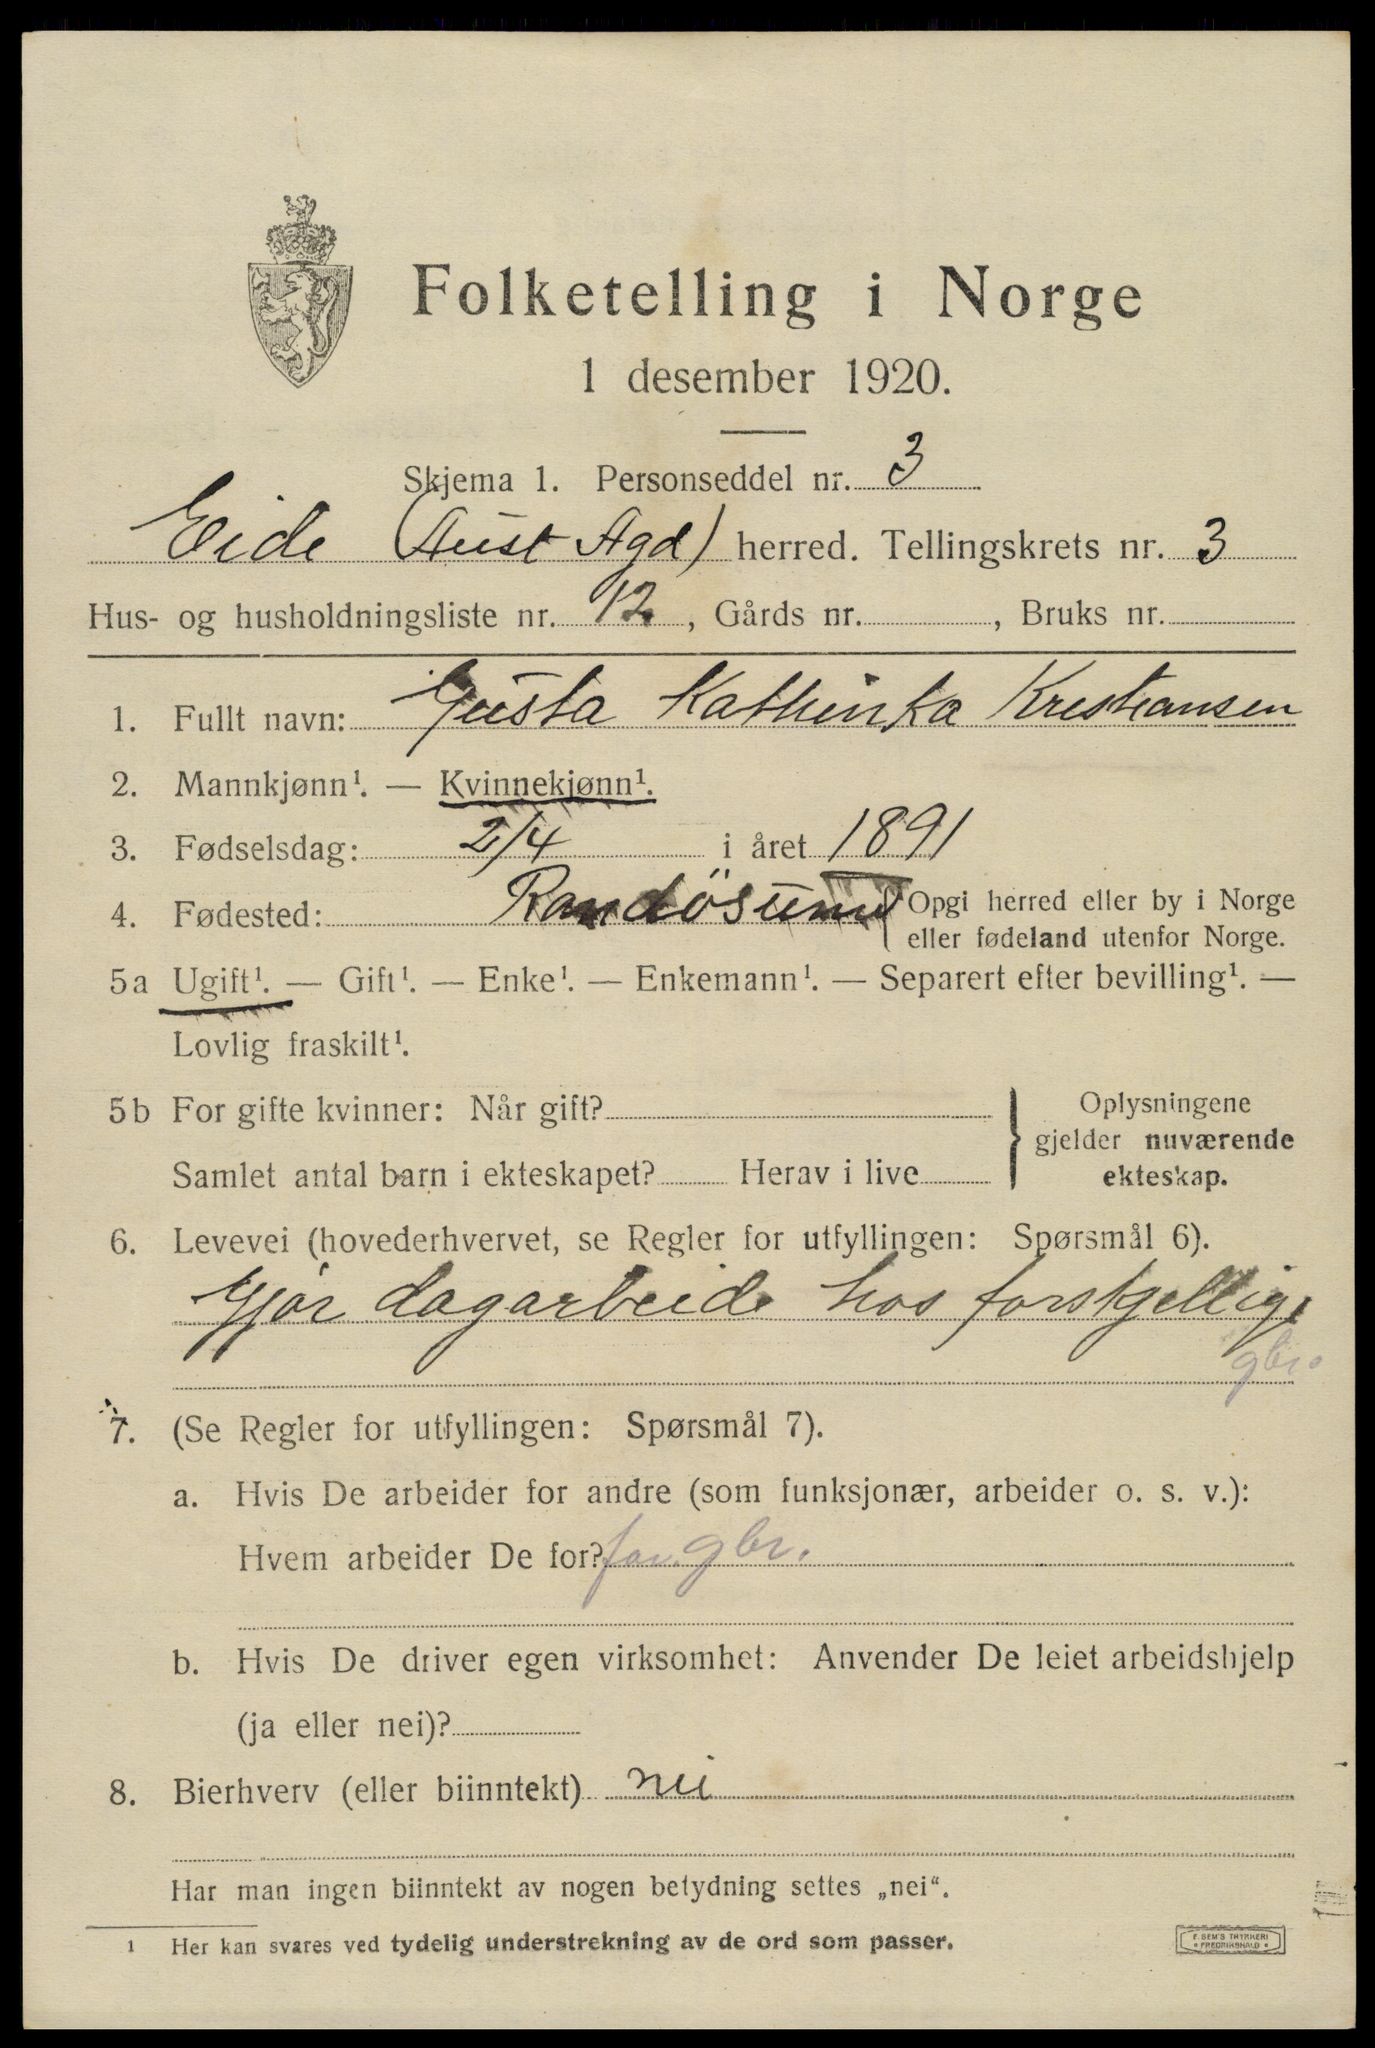 Folketelling i Norge
1 desember 1920.
Skjema 1. Personseddel nr. 3
Eide (Aust Agd) herred. Tellingskrets nr. 3
Hus- og husholdningsliste nr. 12, Gårds nr. , Bruks nr.
1. Fullt navn: Gusta Kathinka Kristiansen
2. Mannkjønn¹. — Kvinnekjønn¹.
3. Fødselsdag: 2/4 i året 1891
4. Fødested: Randösund { Opgi herred eller by i Norge
eller fødeland utenfor Norge.
5a Ugift¹. — Gift¹. — Enke¹. — Enkemann¹. — Separert efter bevilling¹. —
Lovlig fraskilt¹.
5b For gifte kvinner: Når gift? } Oplysningene
gjelder nuværende
Samlet antal barn i ekteskapet? Herav i live ekteskap.
6. Levevei (hovederhvervet, se Regler for utfyllingen: Spørsmål 6).
Gjør dagarbeide hos forskjellige
gbr.
7. (Se Regler for utfyllingen: Spørsmål 7).
a. Hvis De arbeider for andre (som funksjonær, arbeider o. s. v.):
Hvem arbeider De for? for. gbr.
b. Hvis De driver egen virksomhet: Anvender De leiet arbeidshjelp
(ja eller nei)?
8. Bierhverv (eller biinntekt) nei
Har man ingen biinntekt av nogen betydning settes „nei“.
¹ Her kan svares ved tydelig understrekning av de ord som passer.
E. SEM'S TRYKKERI
• FREDRIKSHALD •